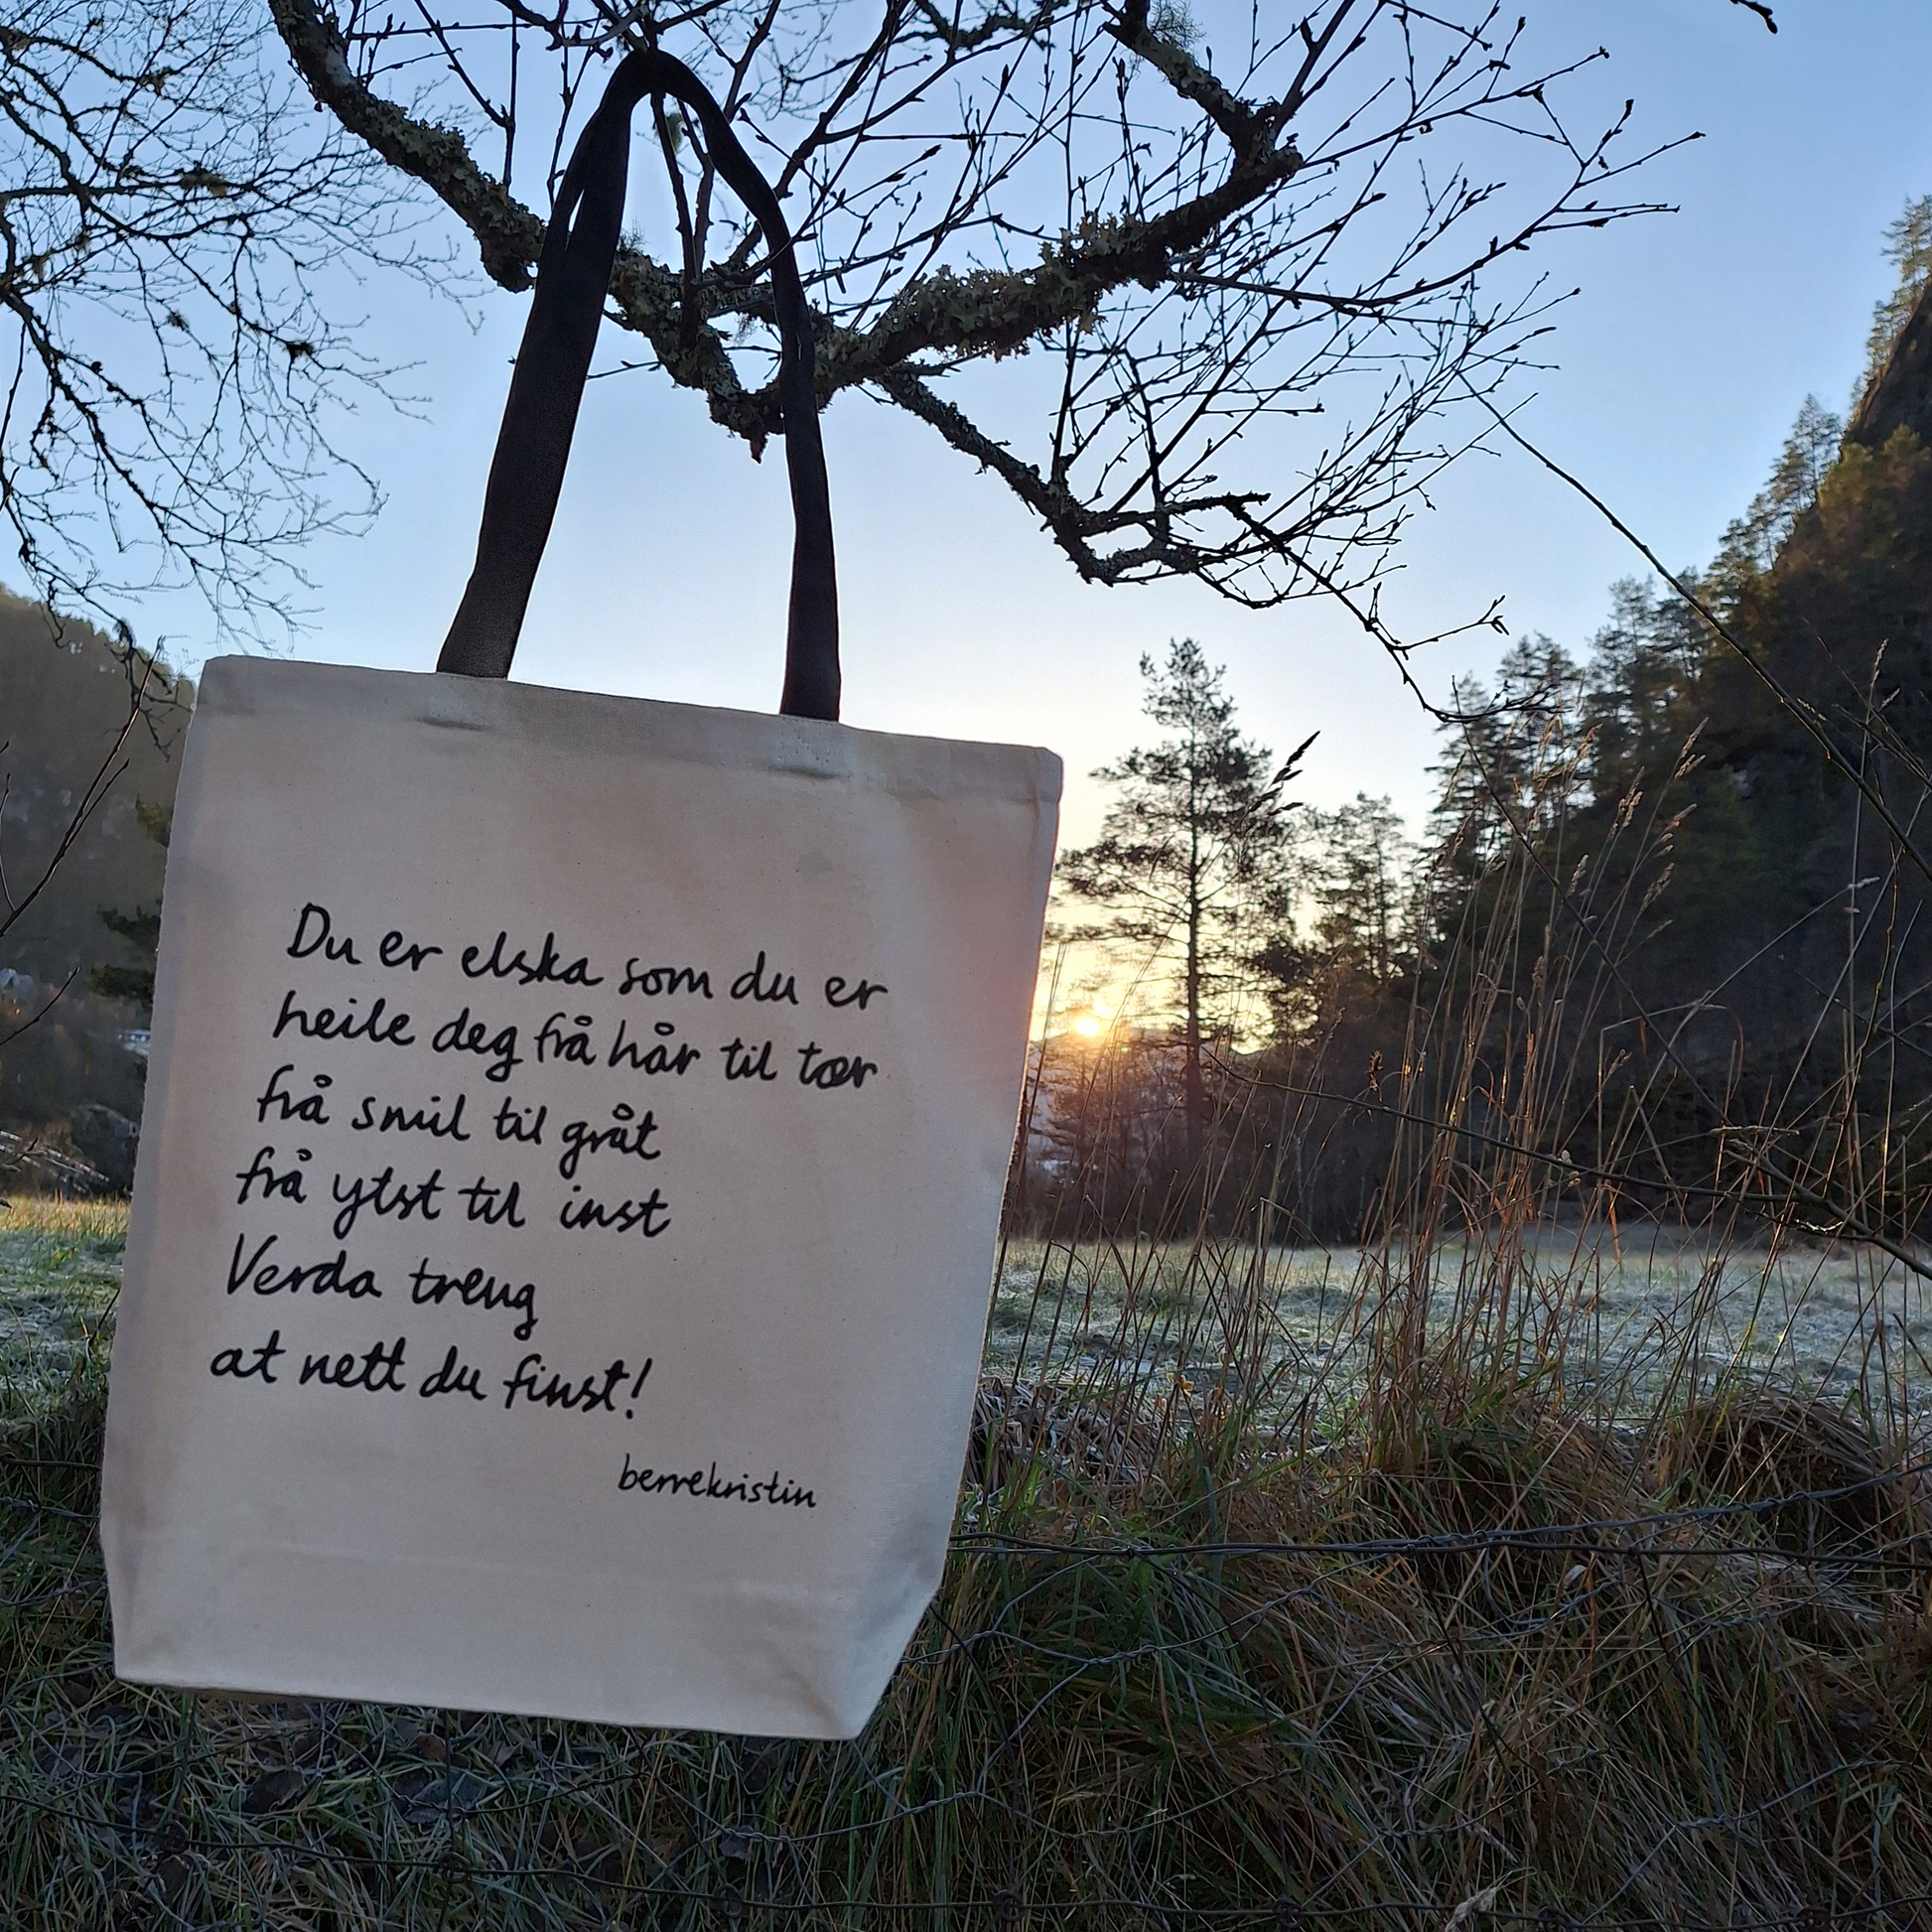 Du er elska som du er
heile deg frå hår til tær
frå smil til gråt
frå ytst til inst
Verda treng
at nett du finst!
berrekristin